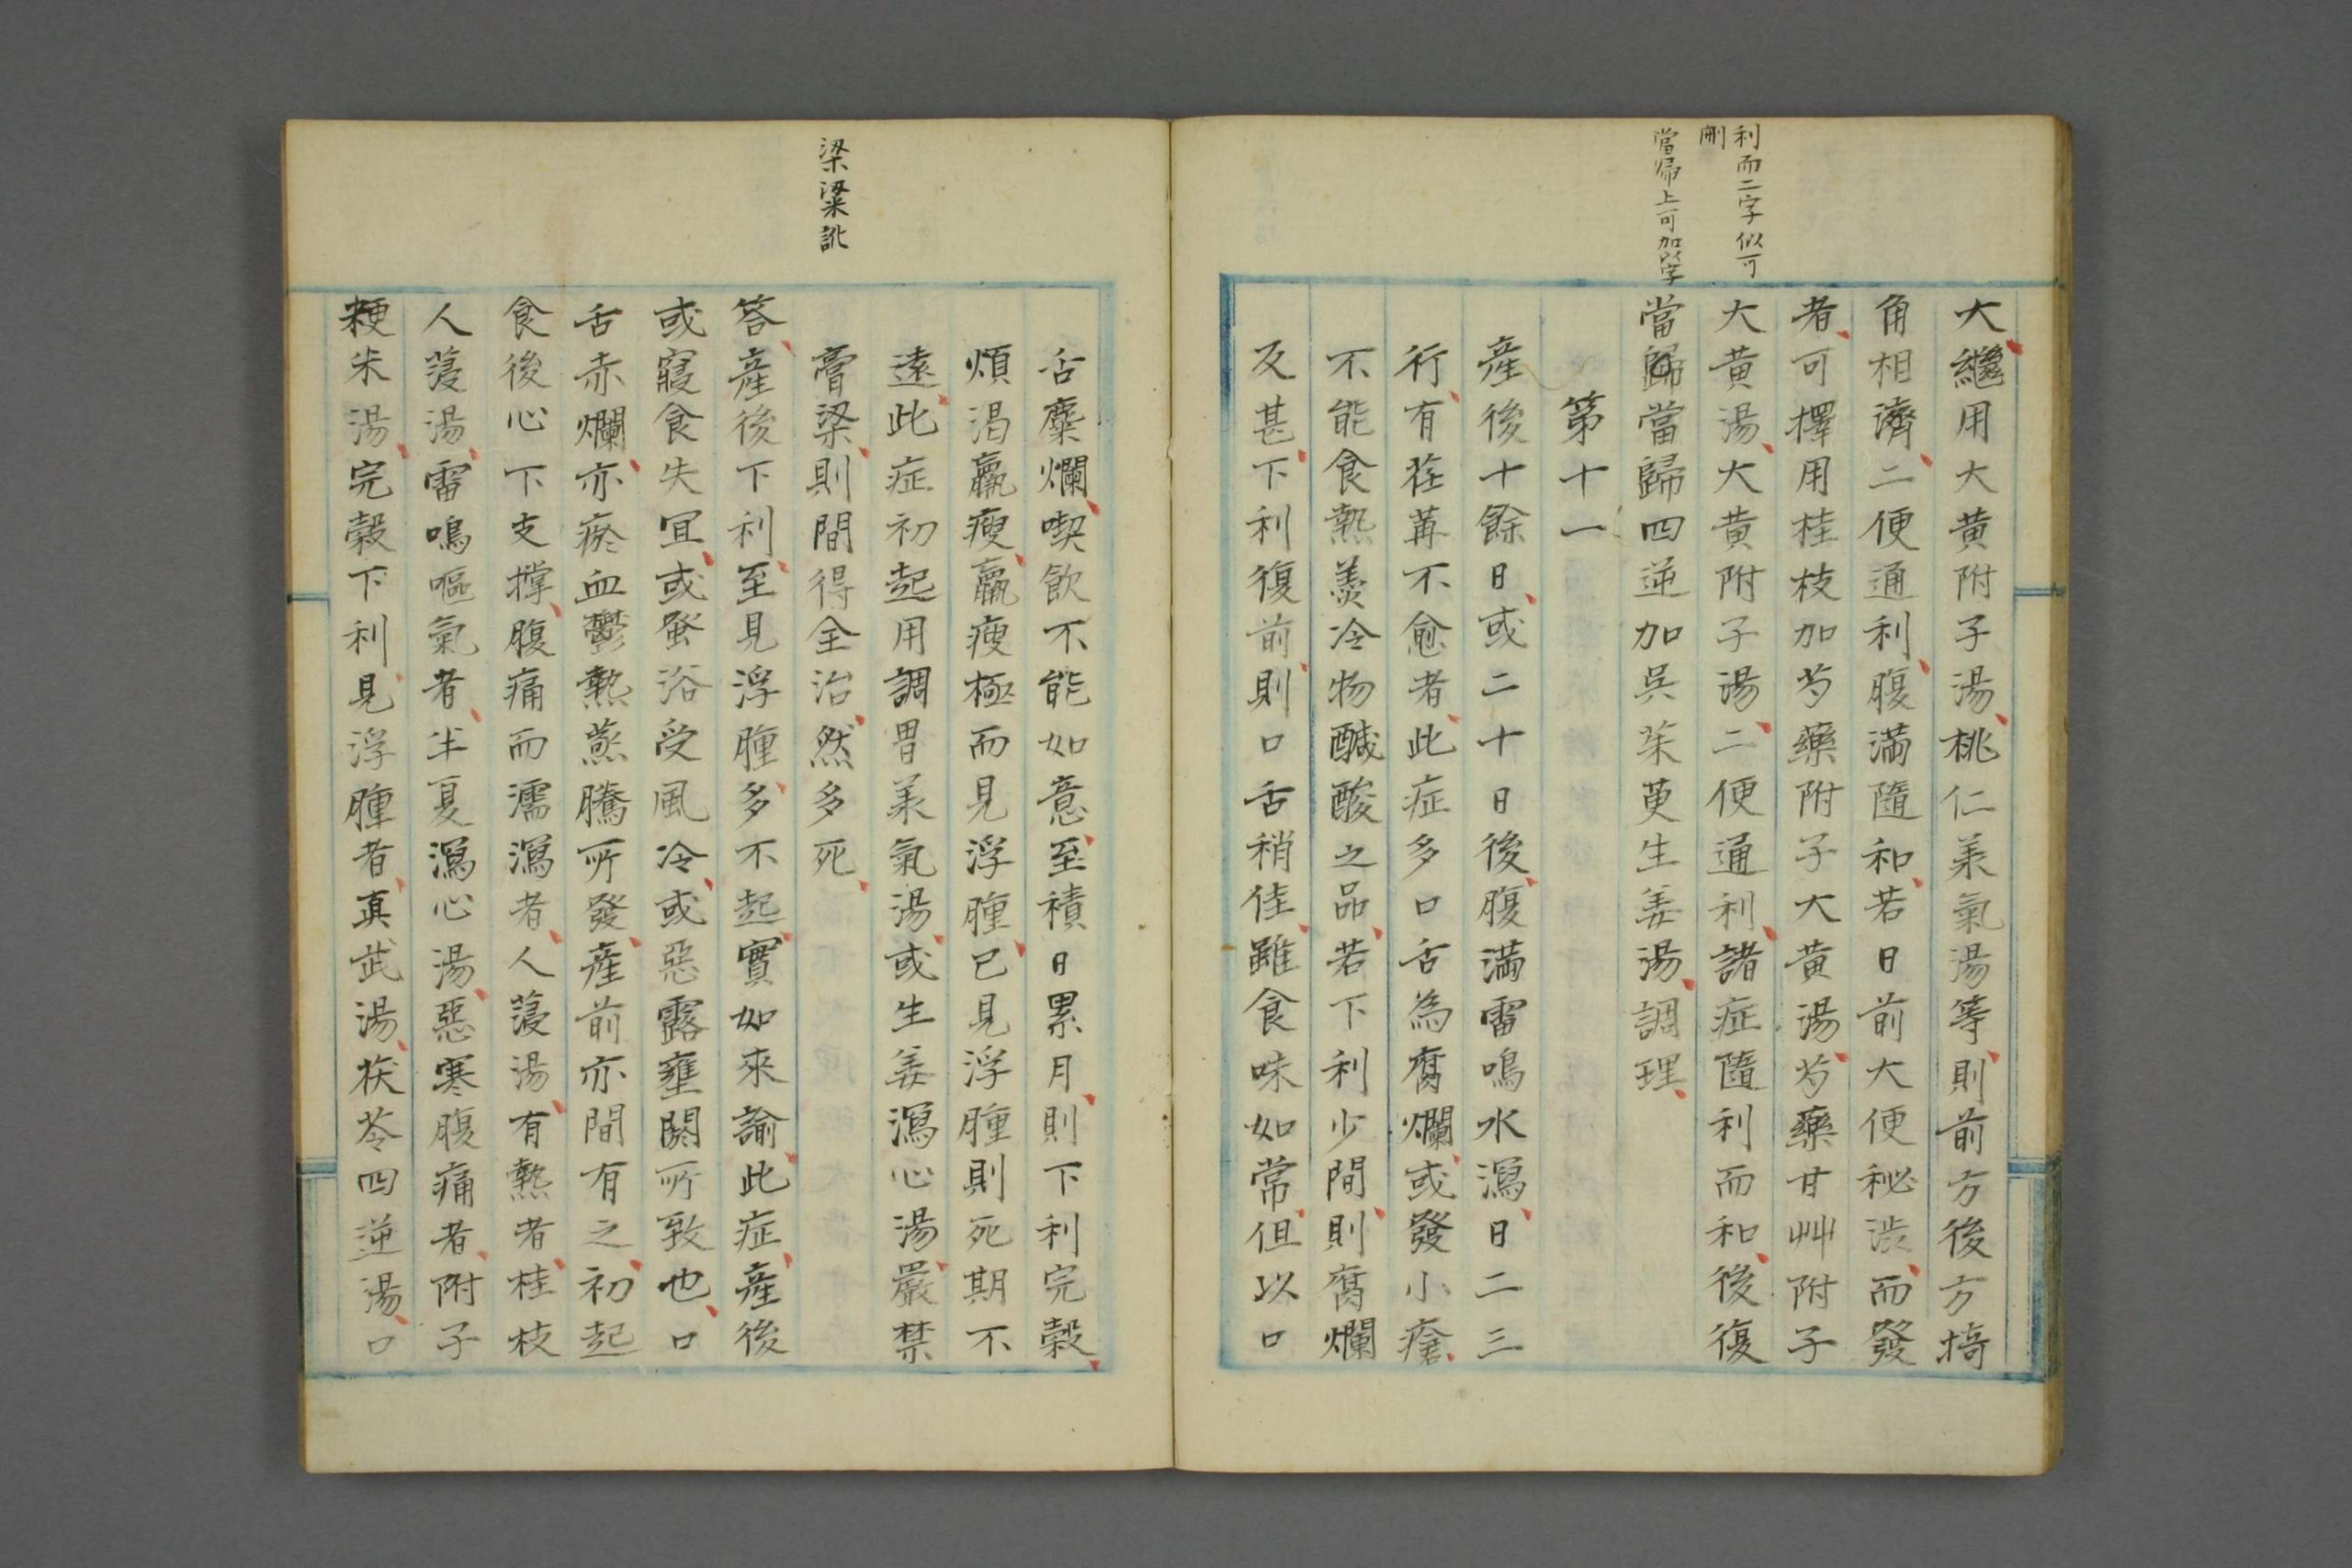 利而二字似可
刪
當歸上可加以字
大繼用大黄附子湯桃仁羕氣湯等則前方後方掎
角相濟二便通利腹滿隨和若日前大便秘渋而發
者可擇用桂枝加芍藥附子大黄湯芍藥甘艸附子
大黄湯大黄附子湯二便通利諸症隨利而和後復
當歸當歸四逆加呉茱萸生姜湯調理
第十一
産後十餘日或二十日後腹滿雷鳴水瀉日二三
行有荏苒不愈者此症多口舌為腐爛或發小瘡
不能食熱羮冷物醎酸之品若下利少間則腐爛
反甚下利復前則口舌稍佳雖食味如常但以口
舌糜爛喫飲不能如意至積日累月則下利完穀
煩渇羸瘦羸瘦極而見浮腫已見浮腫則死期不
遠此症初起用調胃羕氣湯或生姜瀉心湯嚴禁
梁粱訛
膏梁則間得全治然多死
答産後下利至見浮腫多不起實如來諭此症産後
或寢食失冝或蚤浴受風冷或惡露壅閼所致也口
舌赤爛亦瘀血鬱熱蒸騰所發産前亦間有之初起
食後心下支撑腹痛而濡瀉者人薓湯有熱者桂枝
人薓湯雷鳴嘔氣者半夏瀉心湯惡寒腹痛者附子
粳米湯完穀下利見浮腫者真武湯茯苓四逆湯口